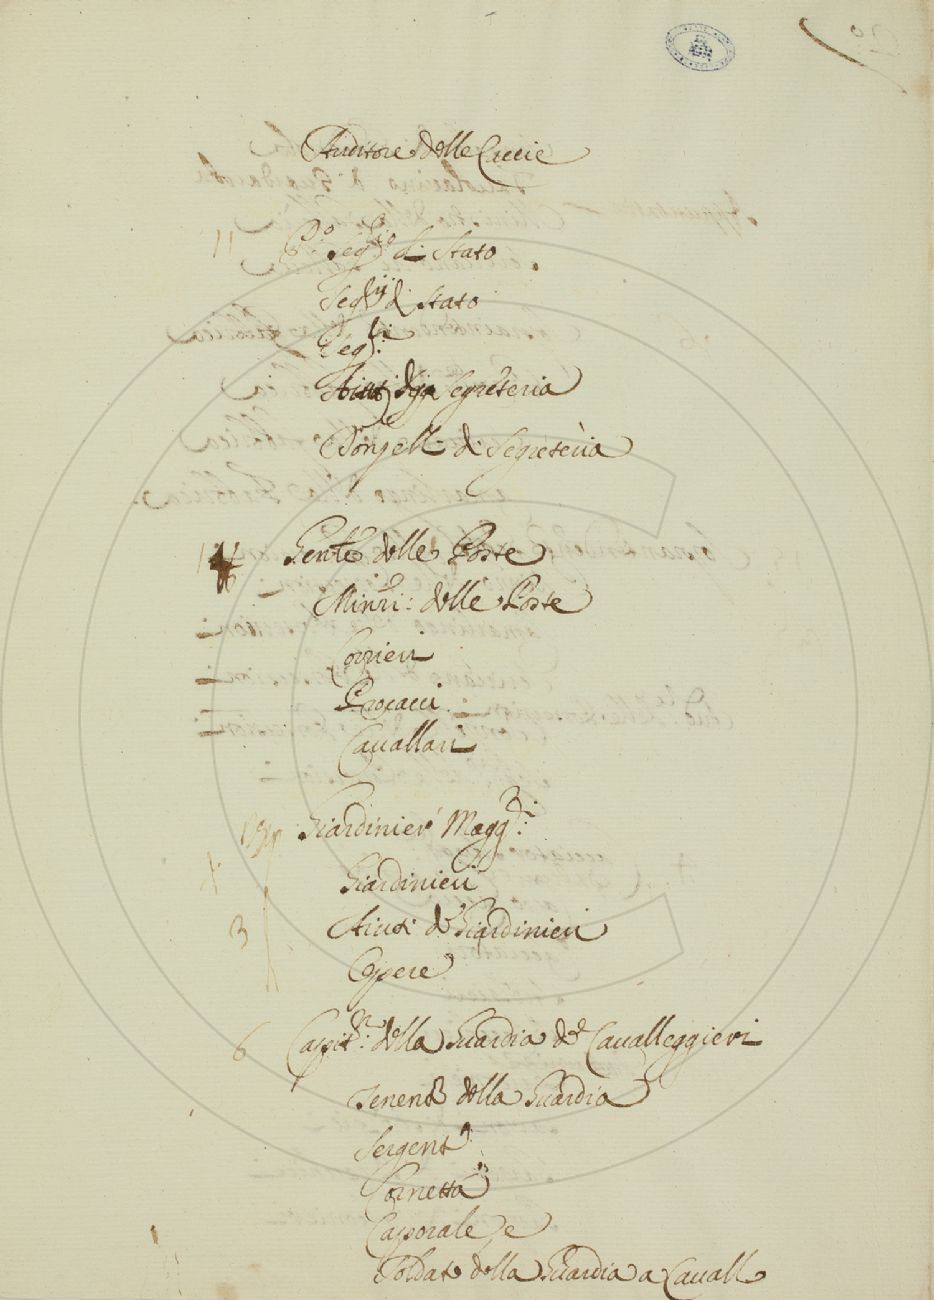 Auditore delle Caccie
11 P.o Seg.rio di Stato
Seg.rij di Stato
Seg.ri
Aiuti di Segreteria
Donzelli di Segreteria
Gente delle Poste
Minri: delle Poste
Corrieri
Procacci
Cavallari
Giardinieri Magg.ri
Giardinieri
3 Aiuti de Giardinieri
Opere
6 Capit.n della Guardia de Cavalleggieri
Tenente della Guardia
Sergente
Cornetta
Caporale, e
Soldati della Guardia a Cavallo